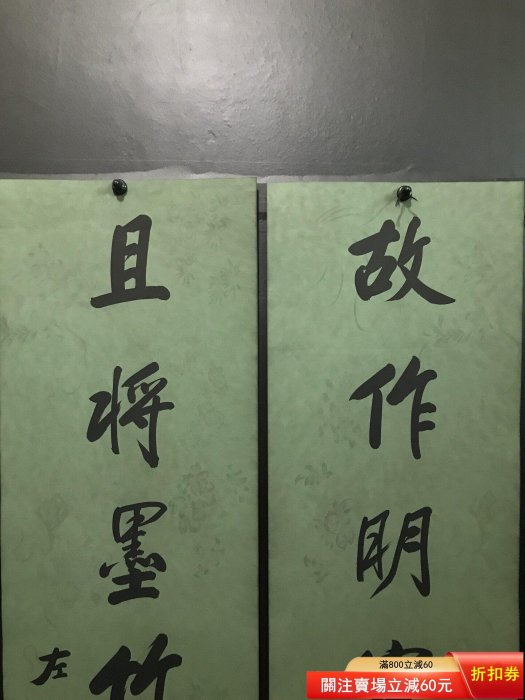 故作明
且将墨竹
左
滿800立減60
關注賣場立減60元
折扣券